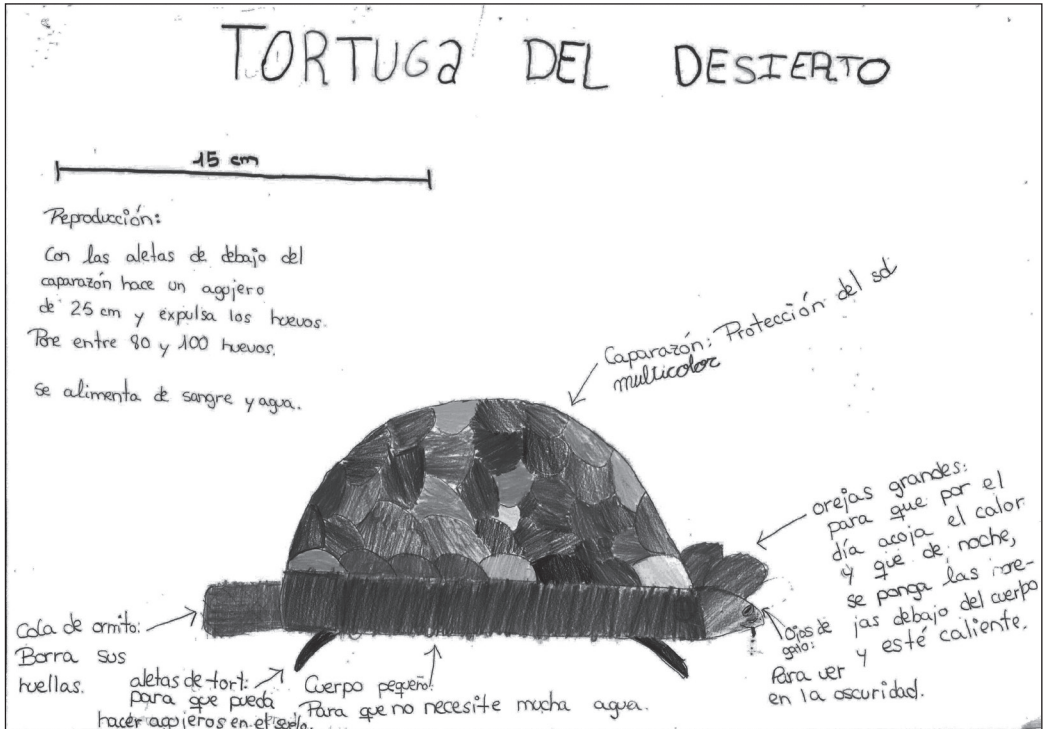 TORTUGa DEL DESIERTO
15 cm
Reproducción:
Con las aletas de debajo del
caparazón hace un agujero
de 25 cm y expulsa los huevos.
Pone entre 80 y 100 huevos.
se alimenta de sangre y agua.
Caparazón: Protección del sol
multicolor
orejas grandes:
para que por el
día acoja el calor
y que de noche,
se ponga las ore-
jas debajo del cuerpo
y esté caliente.
Ojos de
gato:
Para ver
en la oscuridad.
Cola de ornito:
Borra sus
huellas.
aletas de tort:
para que pueda
hacer agujeros en el suelo.
Cuerpo pequeño:
Para que no necesite mucha agua.